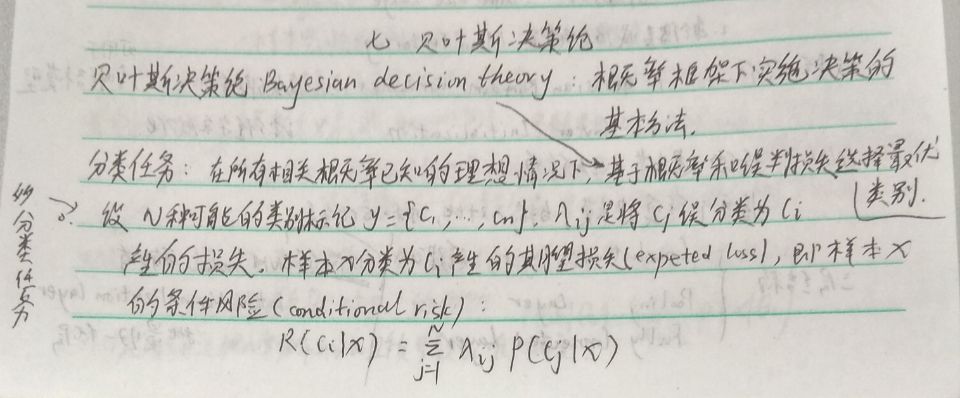 七 贝叶斯决策论
贝叶斯决策论 Bayesian decision theory：概率框架下实施决策的
基本方法.
分类任务：在所有相关概率已知的理想情况下，基于概率和误判损失选择最优
类别.
设 N种可能的类别标记 y={C1,…,Cn}. λij是将Cj误分类为Ci
产生的损失. 样本x分类为Ci产生的期望损失(expeted loss)，即样本x
的条件风险(conditional risk)：
R(Ci|x) = Σ_{j=1}^{N} λij P(Cj|x)
分类任务